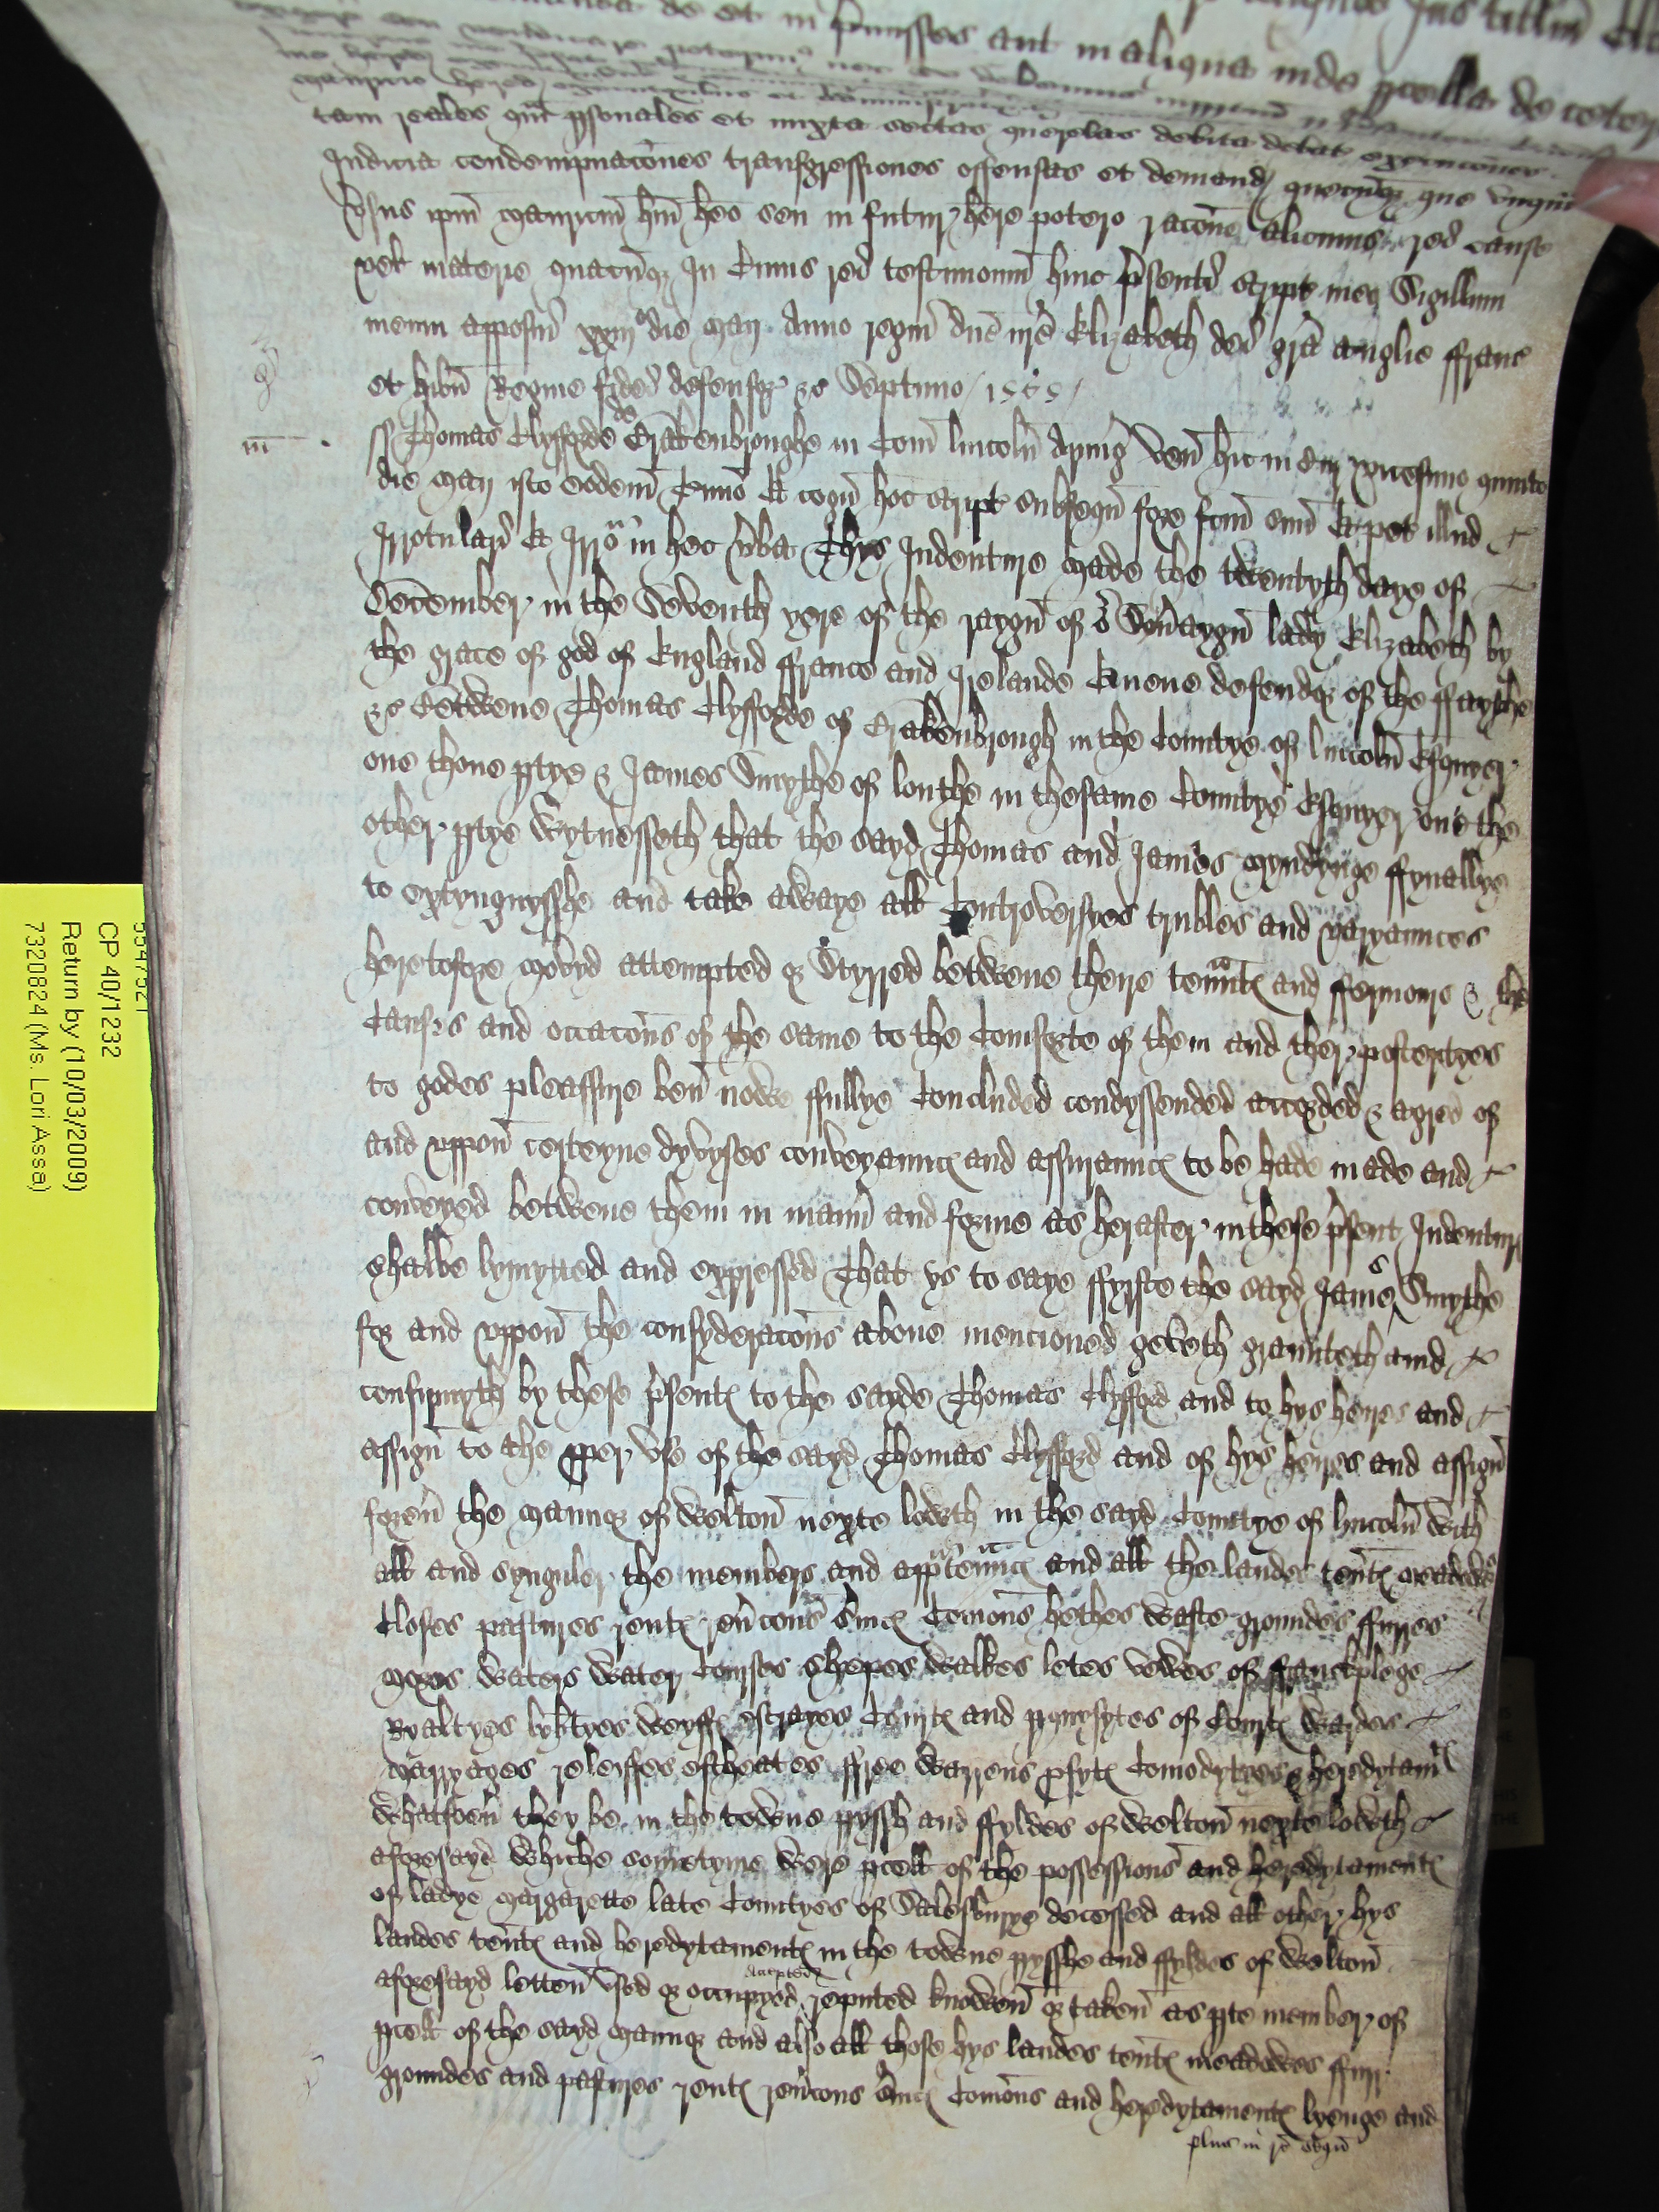 de et in p'missis aut in aliqua inde pcella de ceter
tam reales qm psonales et mixta sectas querelas debita debat execucones
Judicia condempnacones transgressiones offensas et demand quecumq que unqm
vsus ipm Mauricm hui heo seu in futur here potero racone alicuius red cause
vel materie quacumq In Cuius rei testimonium huic p'senti script meo Sigillum
meum apposui xxiij die Maij Anno regni dne nre Elizabeth dei gra Anglie ffranc
et hibn Regine fidei defensor &c Septimo 1565
m
ss Thomas Clyfforde de Brakenbroughe in Com lincoln Armig ven hic in Cur vicesimo quinto
die Maij isto eodem Tmio Et cogn hoc script subsequn fore fcm suu Et pet illud
Irrotulari Et Irro in hec vba Thys Indenture made the twentyth daye of
December in the Seventh yere of the raygn of or Soveraygn lady Elizabeth by
the grace of god of England ffrance and Irelande Quene defendor of the ffaythe
&c Betwene Thomas Clyfforde of Brakenbrough in the Countye of lincoln Esquyer
one thone ptye & James Smythe of louthe in thesame Countye Esquyer one the
other ptye Wytnesseth that the sayd Thomas and James myndynge ffynallye
to extynguysshe and take awaye all Controversyes trubles and varyaunces
heretofore movyd attempted or Styrred betwene theire tenntes and ffermours & the
Causes and occacons of the same to the Comforte of them and ther posterytyes
to godes pleassure ben nowe ffullye Concluded condyssended accorded & agred of
and uppon certeyne dyvyses conveyaunces and assuraunces to be hade made and
conveyed betwene them in mann and forme as herafter in these p'sent Indentur
shalbe lymytted and expressed That ys to saye ffyrste the sayd James Smythe
for and uppon the consyderacons above mencioned geveth graunteth and
confirmyth by these p'sentes to the sayde Thomas Clyfford and to hys heires and
assign to the pper use of the sayd Thomas Clyfford and of hys heyres and assign
forev the Mannor of welton nexte lowth in the sayd Countye of lincoln with
all and synguler the members and apptennces and all the landes tentes meadowes
Closes pastures rentes revcons svices Comons hethes waste groundes ffurres
Mores waters water Courses shepes walkes letes vewes of ffranckplege
Ryaltyes lybtyes weyffes estrayes Courtes and pquysytes of Courtes wardes
Marryages releiffes escheates ffree warrens pfytes Comodytyes & heredytamtes
whatsoev they be in the towne pyssh and ffyldes of welton nexte lowth
aforesayd whiche sometyme were pcell of the possessions and heredytamentes
of ladye Margarette late Countyes of Salesburye decessed and all other hys
landes tentes and heredytamentes in the towne pysshe and ffyldes of welton
aforesayd letten used or occupyed accepted reputed knowen or taken as pte member or
pcell of the sayd mannor and also all those hys landes tentes meadowes ffurr
groundes and pastures rentes revcons svices Comons and heredytamentes lyenge and
plus in ro sequ
CP 40/1232
Return by (10/03/2009)
7320824 (Ms. Lori Assa)